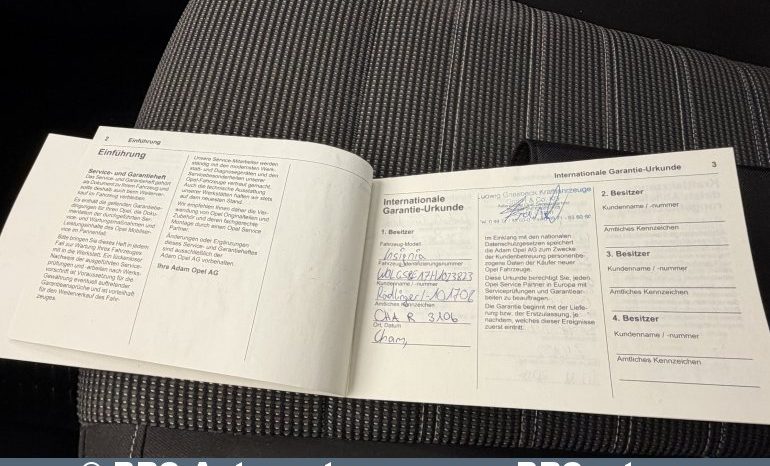 2 Einführung
Einführung
Service- und Garantieheft
Das Service- und Garantieheft gehört
als Dokument zu Ihrem Fahrzeug und
sollte deshalb auch beim Wiederver-
kauf im Fahrzeug verbleiben.
Es enthält die geltenden Garantiebe-
dingungen für Ihren Opel, die Doku-
mentation der durchgeführten Ser-
vice- und Wartungsmaßnahmen und
Leistungsinhalte des Opel Mobilser-
vice im Pannenfall.
Bitte bringen Sie dieses Heft in jedem
Fall zur Wartung Ihres Fahrzeuges
mit in die Werkstatt. Ein lückenloser
Nachweis der ausgeführten Service-
prüfungen und -arbeiten nach Werks-
vorschrift ist Voraussetzung für die
Gewährung eventuell auftretender
Garantieansprüche und ist vorteilhaft
für den Weiterverkauf des Fahr-
zeuges.
Unsere Service-Mitarbeiter werden
ständig mit den modernsten Werk-
statt- und Diagnosegeräten und den
Servicebesonderheiten unserer
Opel-Fahrzeuge vertraut gemacht.
Auch die technische Ausstattung
unserer Werkstätten halten wir stets
auf dem neuesten Stand.
Wir empfehlen Ihnen daher die Ver-
wendung von Opel Originalteilen und
Zubehör und deren fachgerechte
Montage durch einen Opel Service
Partner.
Änderungen oder Ergänzungen
dieses Service- und Garantieheftes
sind ausschließlich der
Adam Opel AG vorbehalten.
Ihre Adam Opel AG
Internationale Garantie-Urkunde 3
Internationale
Garantie-Urkunde
1. Besitzer
Fahrzeug-Modell
Insignia
Fahrzeug-Identifizierungsnummer
Kundenname / -nummer
Amtliches Kennzeichen
CHA R 3106
Ort, Datum
Cham,
Ludwig Griesbeck Kraftfahrzeuge
& Co.
Im Einklang mit den nationalen
Datenschutzgesetzen speichert
die Adam Opel AG zum Zwecke
der Kundenbetreuung personenbe-
zogene Daten der Käufer neuer
Opel Fahrzeuge.
Diese Urkunde berechtigt Sie, jeden
Opel Service Partner in Europa mit
Serviceprüfungen und Garantiear-
beiten zu beauftragen.
Die Garantie beginnt mit der Liefe-
rung bzw. der Erstzulassung, je
nachdem, welches dieser Ereignisse
zuerst eintritt.
2. Besitzer
Kundenname / -nummer
Amtliches Kennzeichen
3. Besitzer
Kundenname / -nummer
Amtliches Kennzeichen
4. Besitzer
Kundenname / -nummer
Amtliches Kennzeichen